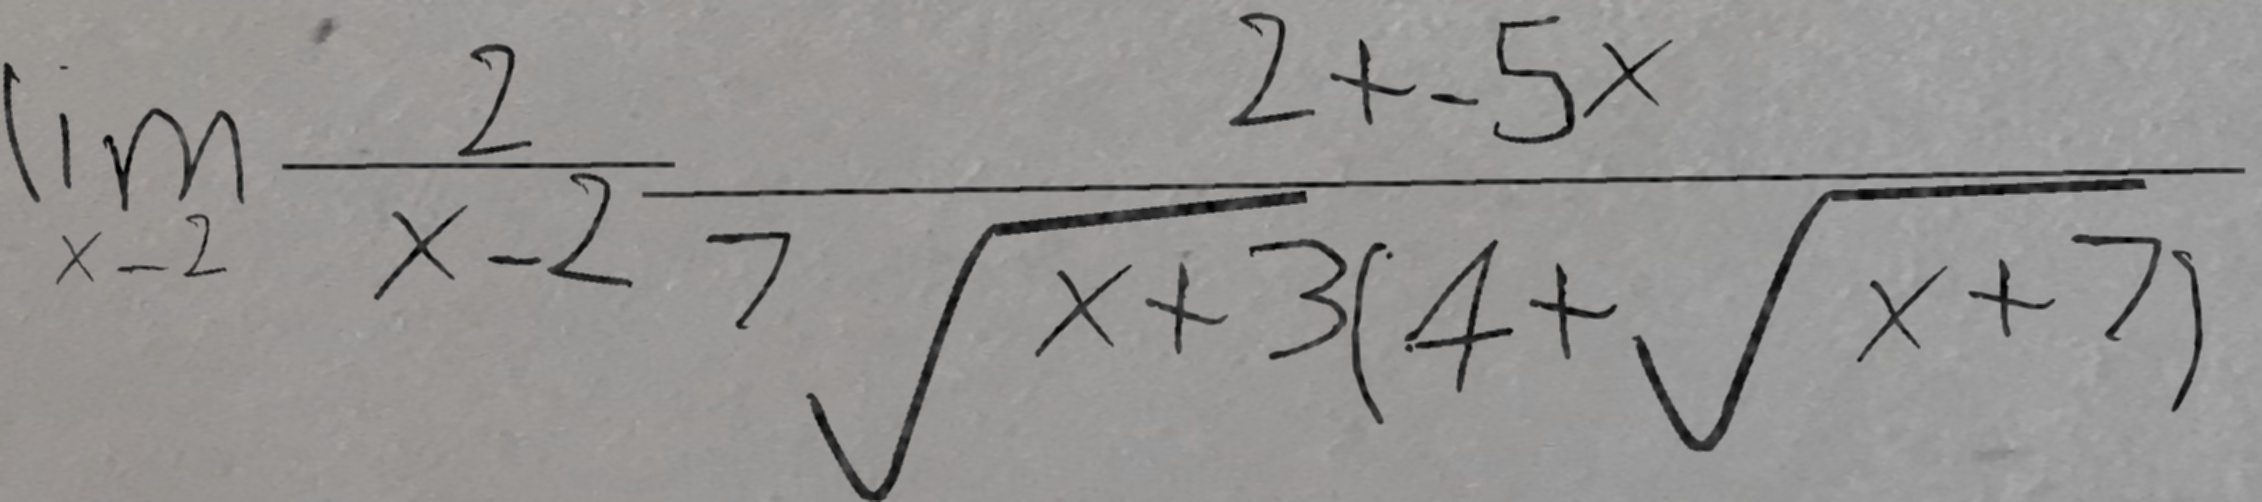 \lim_{x-2} \frac{2}{x-2} \frac{2+-5x}{7\sqrt{x+3}(4+\sqrt{x+7})}